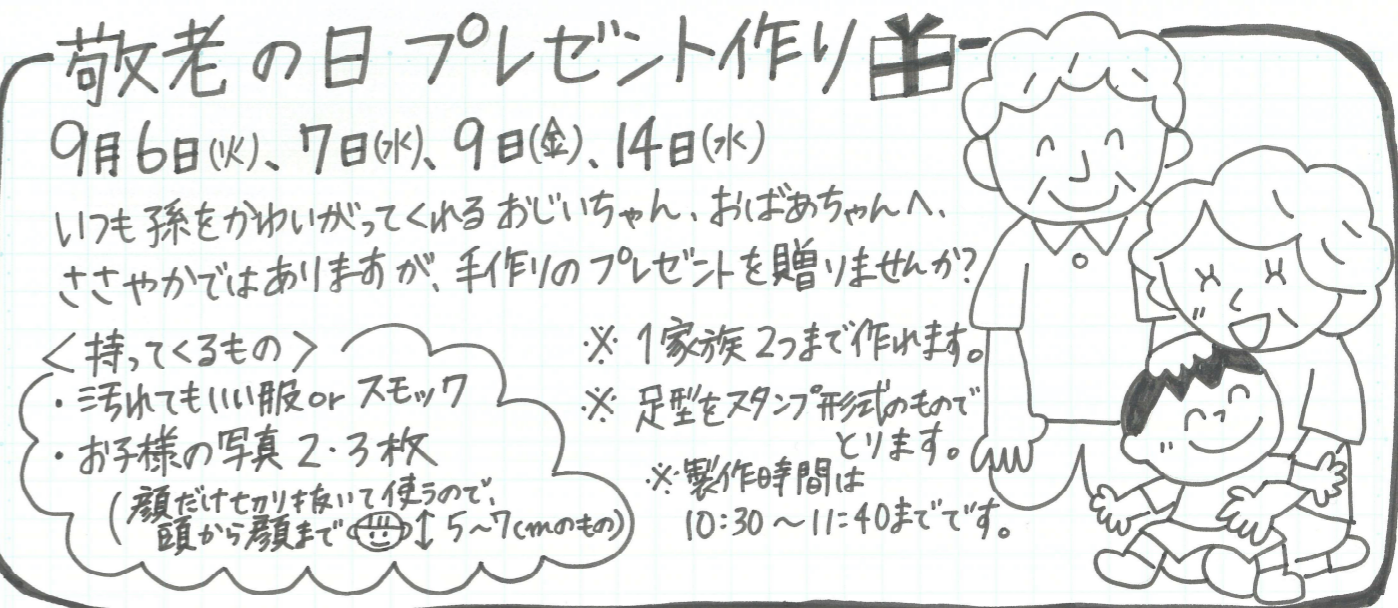 敬老の日プレゼント作り
9月6日(火)、7日(水)、9日(金)、14日(水)
いつも孫をかわいがってくれるおじいちゃん、おばあちゃんへ、
ささやかではありますが、手作りのプレゼントを贈りませんか?
<持ってくるもの>
・汚れてもいい服or スモック
・お子様の写真2・3枚
(顔だけ切り抜いて使うので、
頭から顔まで↕5~7cmのもの)
※ 1家族2つまで作れます。
※ 足型をスタンプ形式のもので
とります。
※製作時間は
10:30~11:40までです。